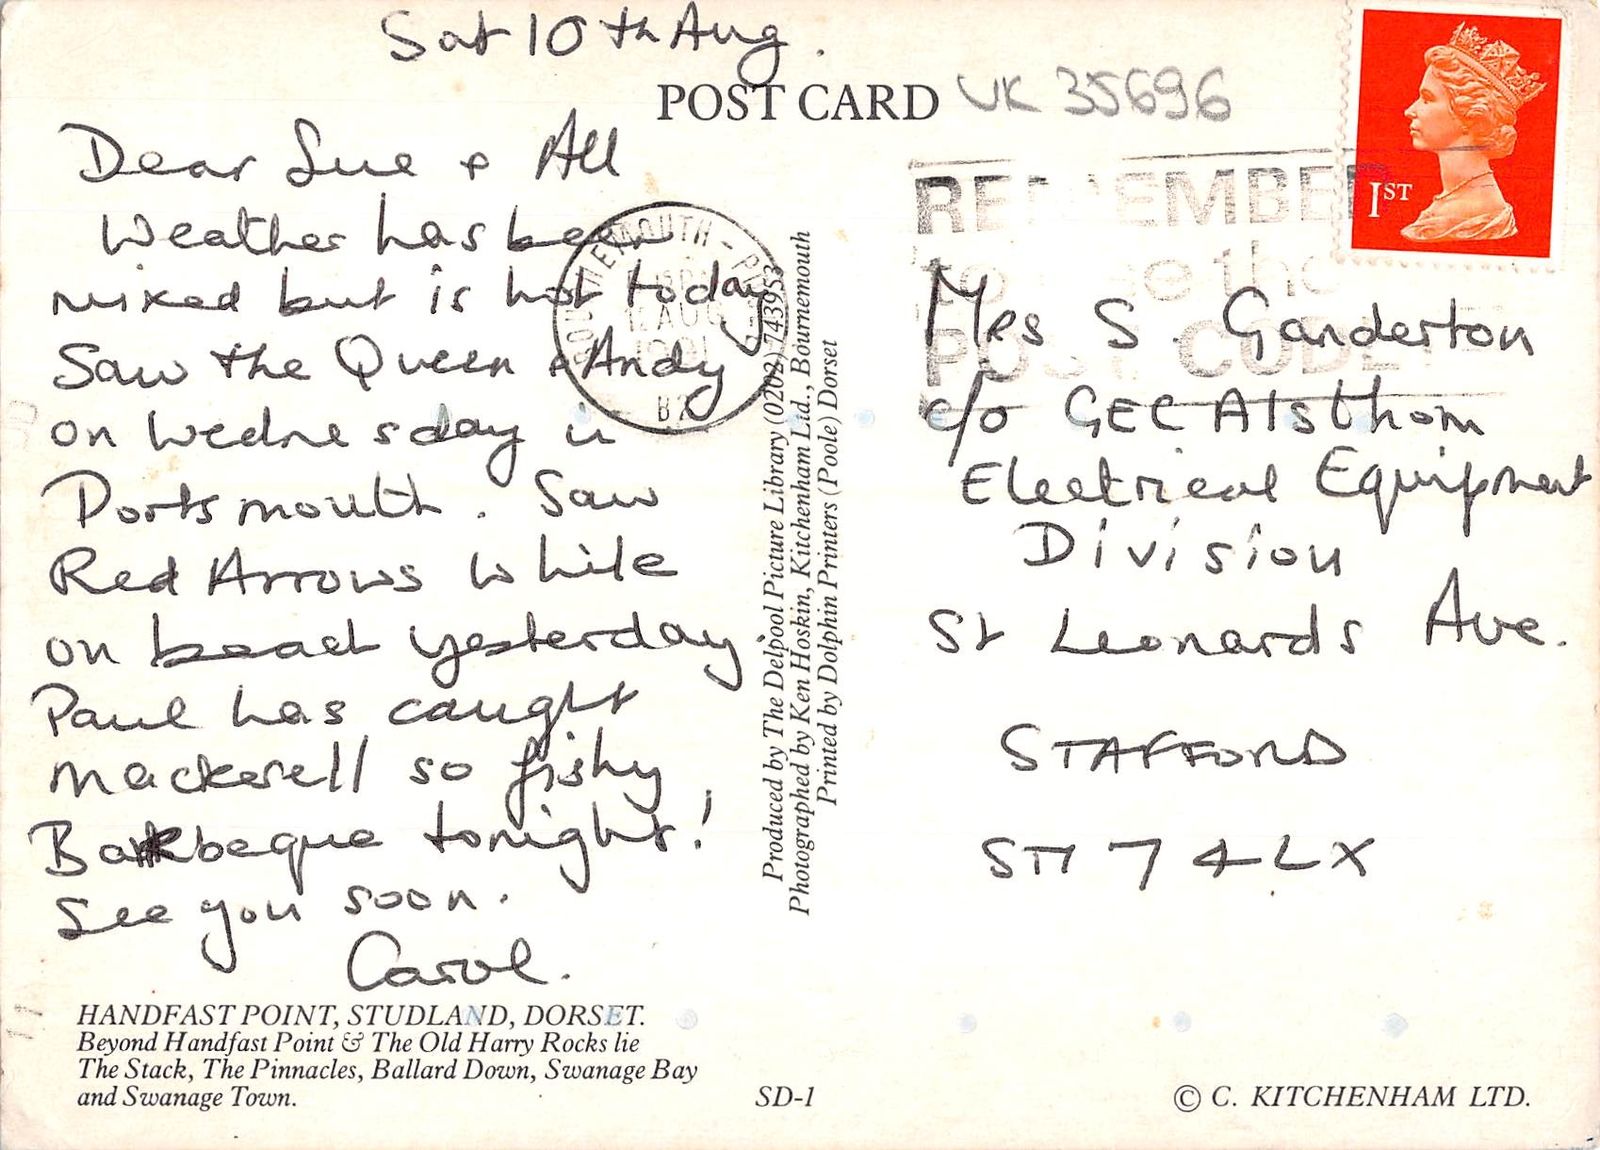 Sat 10th Aug.
POST CARD
UK 35696
Dear Sue & All
Weather has been
mixed but is hot today
Saw the Queen & Andy
on Wednesday in
Portsmouth. Saw
Red Arrows while
on beach yesterday
Paul has caught
mackerell so fishy
Barbeque tonight!
See you soon.
Carol.
HANDFAST POINT, STUDLAND, DORSET.
Beyond Handfast Point & The Old Harry Rocks lie
The Stack, The Pinnacles, Ballard Down, Swanage Bay
and Swanage Town.
SD-1
Produced by The Delpool Picture Library (0202) 743953
Photographed by Ken Hoskin, Kitchenham Ltd., Bournemouth
Printed by Dolphin Printers (Poole) Dorset
AUG
1ST
REMEMBER
the
POST CODE
Mrs S. Ganderton
c/o GEC Alsthom
Electrical Equipment
Division
St Leonards Ave.
STAFFORD
ST17 4LX
© C. KITCHENHAM LTD.